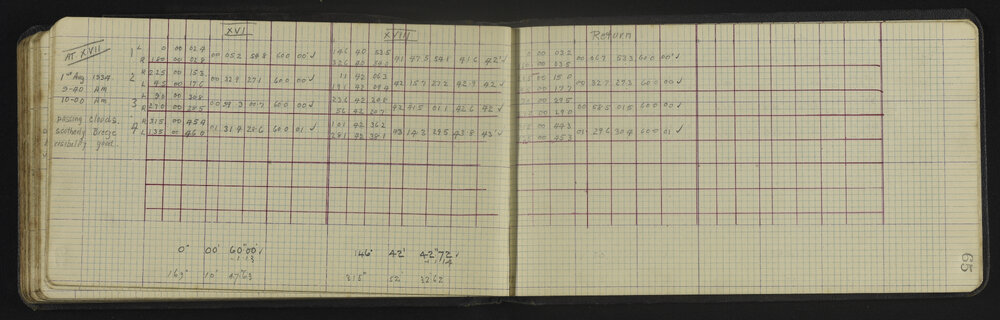 XVI XVIII Return
AT XVII
1 L 0 00 02.4 146 40 53.5 00 03.2
R 180 00 02.8 00 05.2 54.8 60.0 00 ✓ 326 40 54.0 41 47.5 54.1 41.6 42 ✓ 00 03.5 00 06.7 53.3 60.0 00 ✓
1st Aug 1934 2 R 225 00 15.3 11 42 06.3 00 15.0
9-40 AM L 45 00 17.6 00 32.9 27.1 60.0 00 ✓ 191 42 09.4 42 15.7 27.2 42.9 42 ✓ 00 17.7 00 32.7 27.3 60.0 00 ✓
10-00 AM 3 L 90 00 30.8 236 42 20.8 00 29.5
R 270 00 28.5 00 59.3 00.7 60.0 00 ✓ 56 42 20.7 42 41.5 01.1 42.6 42 ✓ 00 29.0 00 58.5 01.5 60.0 00 ✓
passing clouds. 4 R 315 00 45.4 101 42 36.2 00 44.3
southerly Breeze L 135 00 46.0 01 31.4 28.6 60.0 01 ✓ 281 42 38.1 43 14.3 29.5 43.8 43 ✓ 00 45.3 01 29.6 30.4 60.0 01 ✓
visibility good.
0° 00' 60"00 ✓ 146° 42' 42"72 ✓
163° 10' 47"63 52' 32"62
65